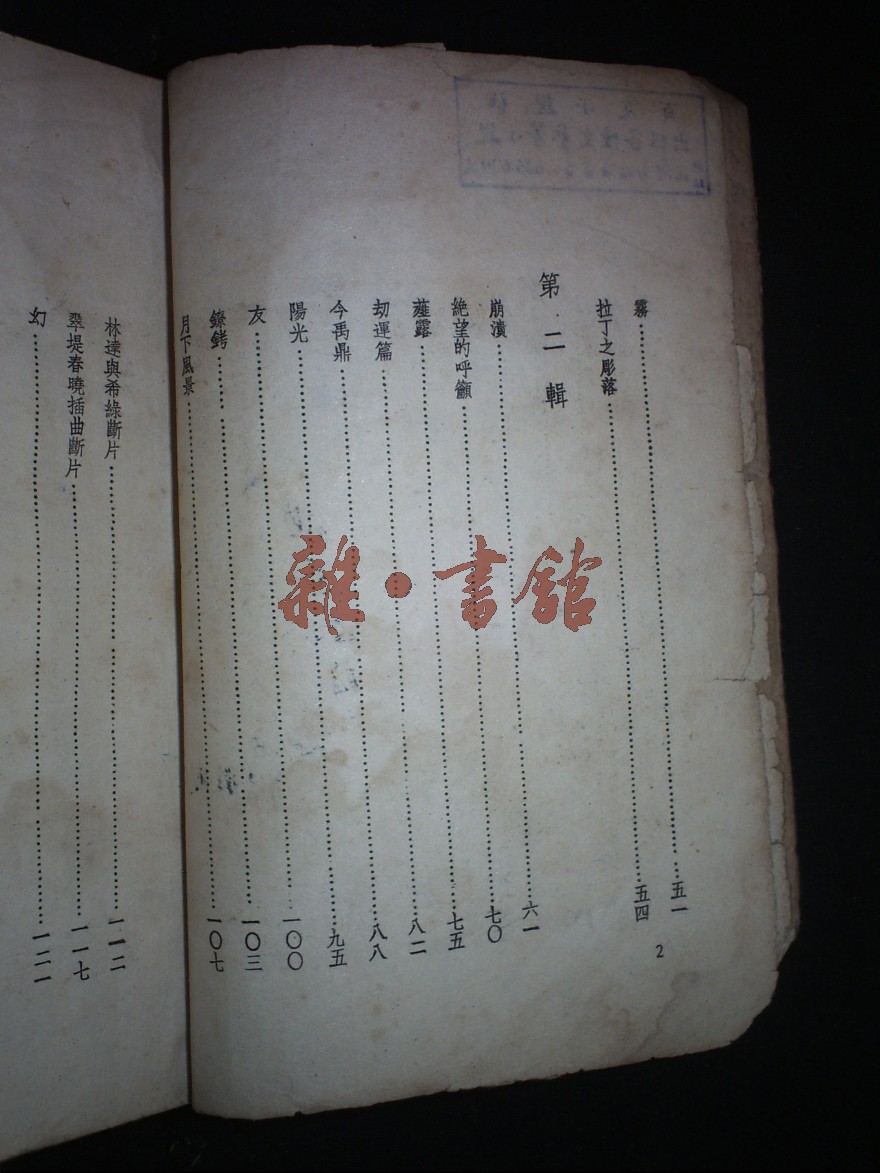 霧……五一
拉丁之彫落……五四
第二輯
崩潰……六一
絕望的呼籲……七〇
薤露……七五
劫運篇……八二
今禹鼎……八八
陽光……九五
友……一〇〇
鐐銬……一〇三
月下風景……一〇七
2
林達與希綠斷片……一一二
翠堤春曉插曲斷片……一一七
幻……一二一
雜·書館